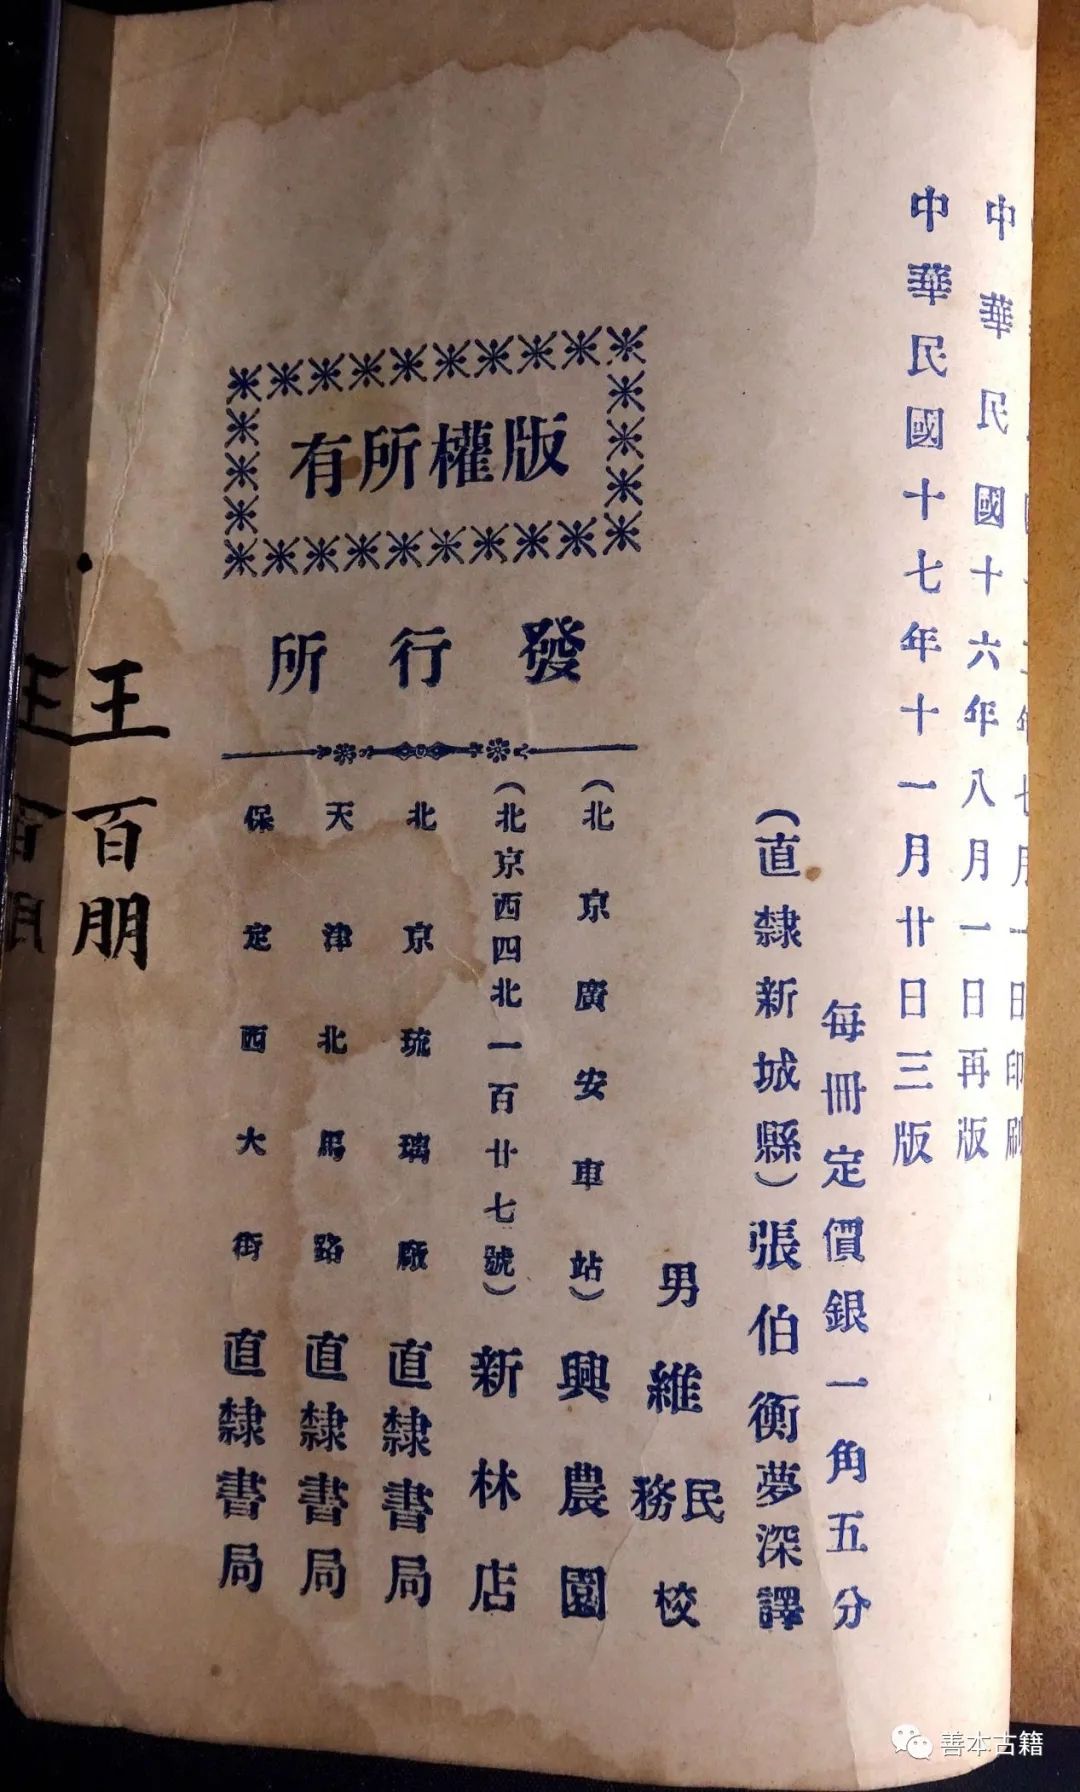 年七月一日印刷
中華民國十六年八月一日再版
中華民國十七年十一月廿日三版
每冊定價銀一角五分
(直隸新城縣)張伯衡夢深譯
男維民務校
版權所有
發行所
(北京廣安車站)興農園
(北京西四北一百廿七號)新林店
北京琉璃廠直隸書局
天津北馬路直隸書局
保定西大街直隸書局
王百朋
王百朋
善本古籍